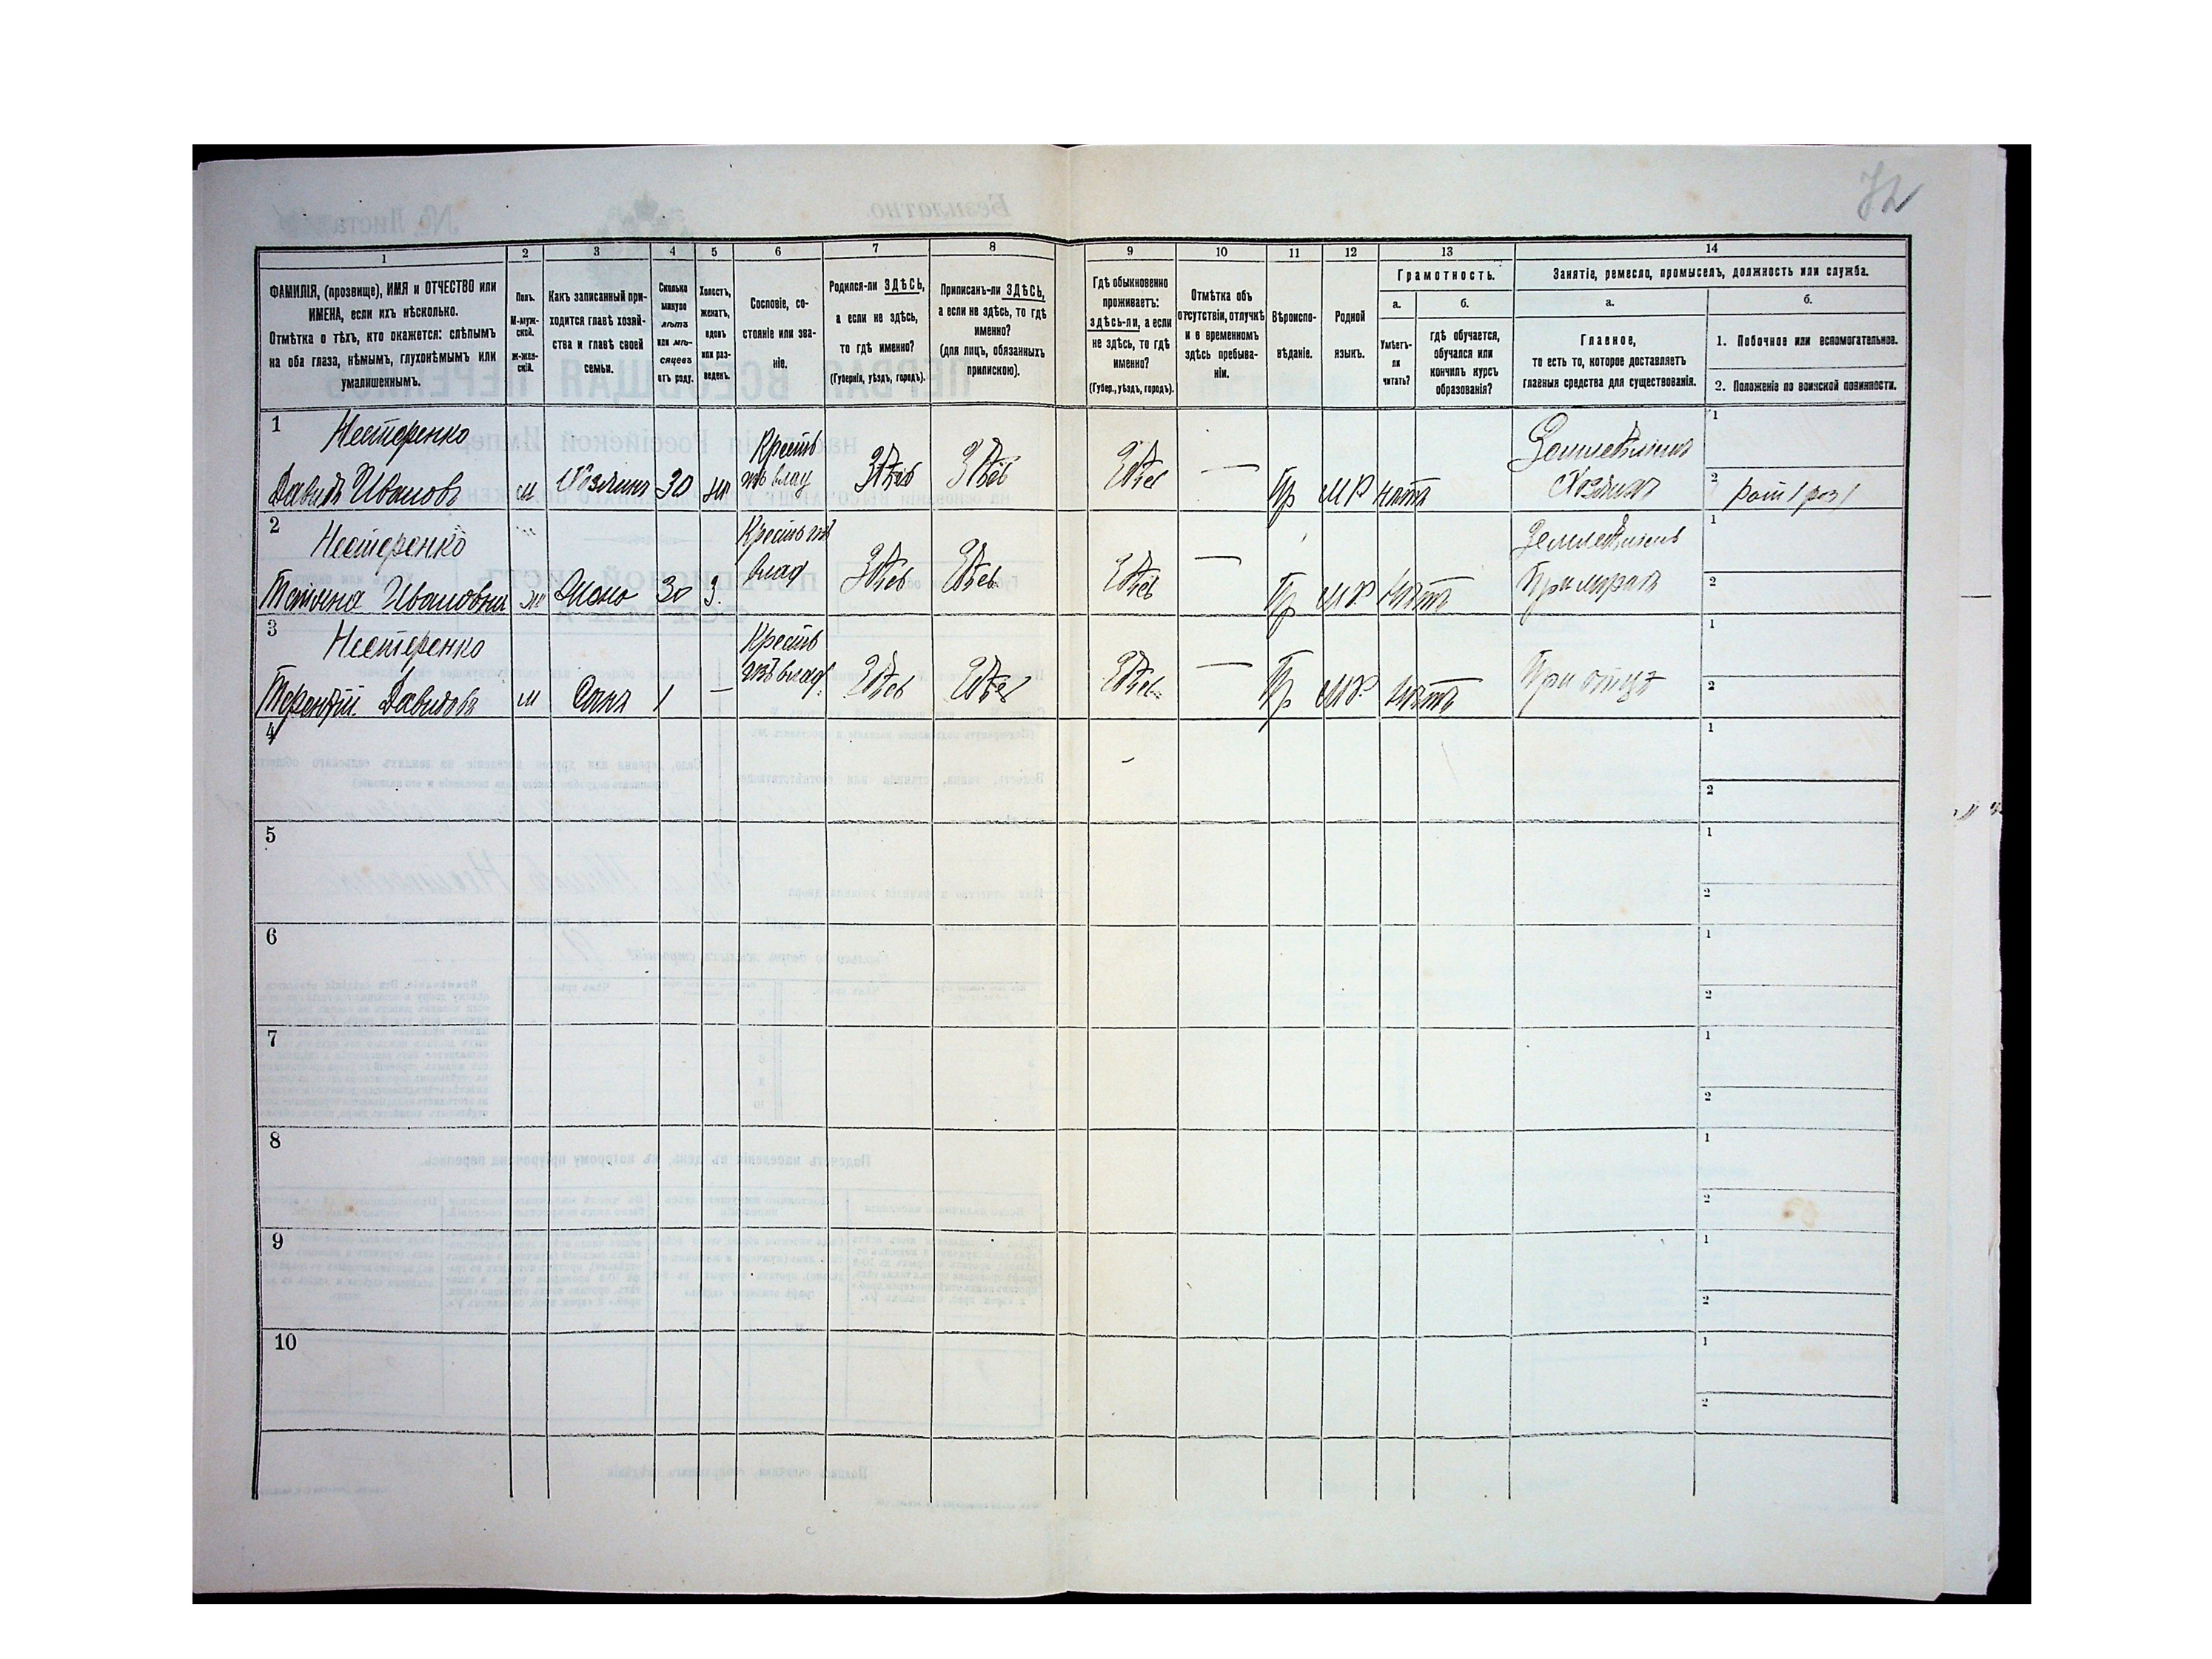 72
1 2 3 4 5 6 7 8 9 10 11 12 13 14
ФАМИЛІЯ, (прозвище), ИМЯ и ОТЧЕСТВО или
ИМЕНА, если ихъ нѣсколько.
Отмѣтка о тѣхъ, кто окажется: слѣпымъ
на оба глаза, нѣмымъ, глухонѣмымъ или
умалишеннымъ.
Полъ.
М-муж-
ской.
Ж-жен-
скій.
Какъ записанный при-
ходится главѣ хозяй-
ства и главѣ своей
семьи.
Сколько
минуло
лѣтъ
или мѣ-
сяцевъ
отъ роду.
Холостъ,
женатъ,
вдовъ
или раз-
веденъ.
Сословіе, со-
стояніе или зва-
ніе.
Родился-ли ЗДѢСЬ,
а если не здѣсь,
то гдѣ именно?
(Губернія, уѣздъ, городъ).
Приписанъ-ли ЗДѢСЬ,
а если не здѣсь, то гдѣ
именно?
(для лицъ, обязанныхъ
припискою).
Гдѣ обыкновенно
проживаетъ:
здѣсь-ли, а если
не здѣсь, то гдѣ
именно?
(Губер., уѣздъ, городъ).
Отмѣтка объ
отсутствіи, отлучкѣ
и о временномъ
здѣсь пребыва-
ніи.
Вѣроиспо-
вѣданіе.
Родной
языкъ.
Грамотность.
а.
Умѣетъ-
ли
читать?
б.
гдѣ обучается,
обучался или
кончилъ курсъ
образованія?
Занятіе, ремесло, промыселъ, должность или служба.
а.
Главное,
то есть то, которое доставляетъ
главныя средства для существованія.
б.
1. Побочное или вспомогательное.
2. Положеніе по воинской повинности.
1 Нестеренко Крестья Земледѣлецъ 1
Давидъ Ивановъ м Хозяинъ 30 ж влад Здѣсь Здѣсь Здѣсь — Пр МР нѣтъ Хозяинъ 2
2 Нестеренко Земледѣлецъ 1
Татьяна Ивановна ж Жена 30 З. влад Здѣсь Здѣсь Здѣсь — Пр МР нѣтъ При мужѣ 2
3 Нестеренко 1
Терентій Давидовъ м Сынъ 1 — изъ влад. Здѣсь Здѣсь Здѣсь — Пр МР нѣтъ При отцѣ 2
4 1
2
5 1
2
6 1
2
7 1
2
8 1
2
9 1
2
10 1
2